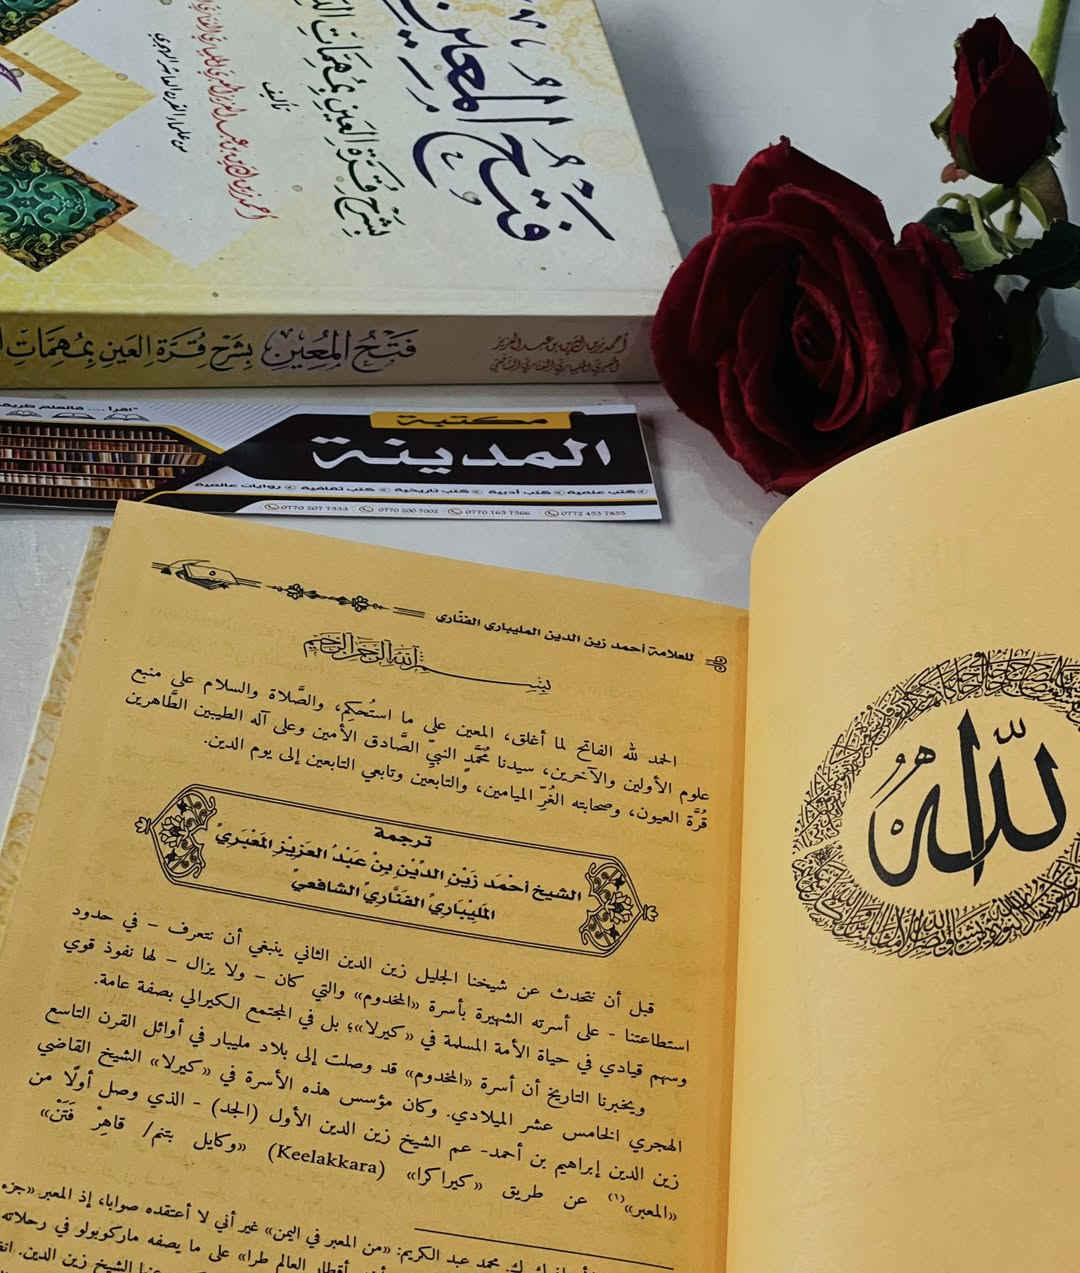 فَتْحُ المُعِين
بِشَرْحِ قُرَّةِ العَيْنِ بِمُهِمَّاتِ
تأليف
من علماء القرن العاشر الهجري
فَتْحُ المُعِينِ بِشَرْحِ قُرَّةِ العَيْنِ بِمُهِمَّاتِ
أحمد زين الدين بن عبد العزيز
المعبري المليباري الفناري الشافعي
مكتبة
المدينة
كتب علمية كتب أدبية كتب تاريخية كتب ثقافية روايات عالمية
0770 507 7333 0770 500 7002 0770 163 7566 0772 453 7855
للعلامة أحمد زين الدين المليباري الفناري
بسم الله الرحمن الرحيم
الحمد لله الفاتح لما أغلق، المعين على ما استُحكِم، والصَّلاة والسلام على منبع
علوم الأولين والآخرين، سيدنا مُحَمَّدٍ النبيِّ الصَّادق الأمين وعلى آله الطيبين الطَّاهرين
قُرَّة العيون، وصحابته الغُرِّ الميامين، والتابعين وتابعي التابعين إلى يوم الدين.
ترجمة
الشيخ أحْمَد زَيْنِ الدِّيْنِ بِنْ عَبْدُ العَزِيْزِ المَعْبَرِيّ
المَلِيْبَارِيّ الفَنَّارِيّ الشافعيّ
قبل أن نتحدث عن شيخنا الجليل زين الدين الثاني ينبغي أن نتعرف - في حدود
استطاعتنا - على أسرته الشهيرة بأسرة «المخدوم» والتي كان - ولا يزال - لها نفوذ قوي
وسهم قيادي في حياة الأمة المسلمة في «كيرلا»؛ بل في المجتمع الكيرالي بصفة عامة.
ويخبرنا التاريخ أن أسرة «المخدوم» قد وصلت إلى بلاد مليبار في أوائل القرن التاسع
الهجري الخامس عشر الميلادي. وكان مؤسس هذه الأسرة في «كيرلا» الشيخ القاضي
زين الدين إبراهيم بن أحمد- عم الشيخ زين الدين الأول (الجد) - الذي وصل أولًا من
«المعبر»(١) عن طريق «كيراكرا» (Keelakkara) «وكايل بتنم/ قاهِرْ فَتَنْ»
محمد عبد الكريم: «من المعبر في اليمن» غير أني لا أعتقده صوابا، إذ المعبر «جزء
أقطار العالم طرا» على ما يصفه ماركوبولو في رحلاته
الشيخ زين الدين.
لله